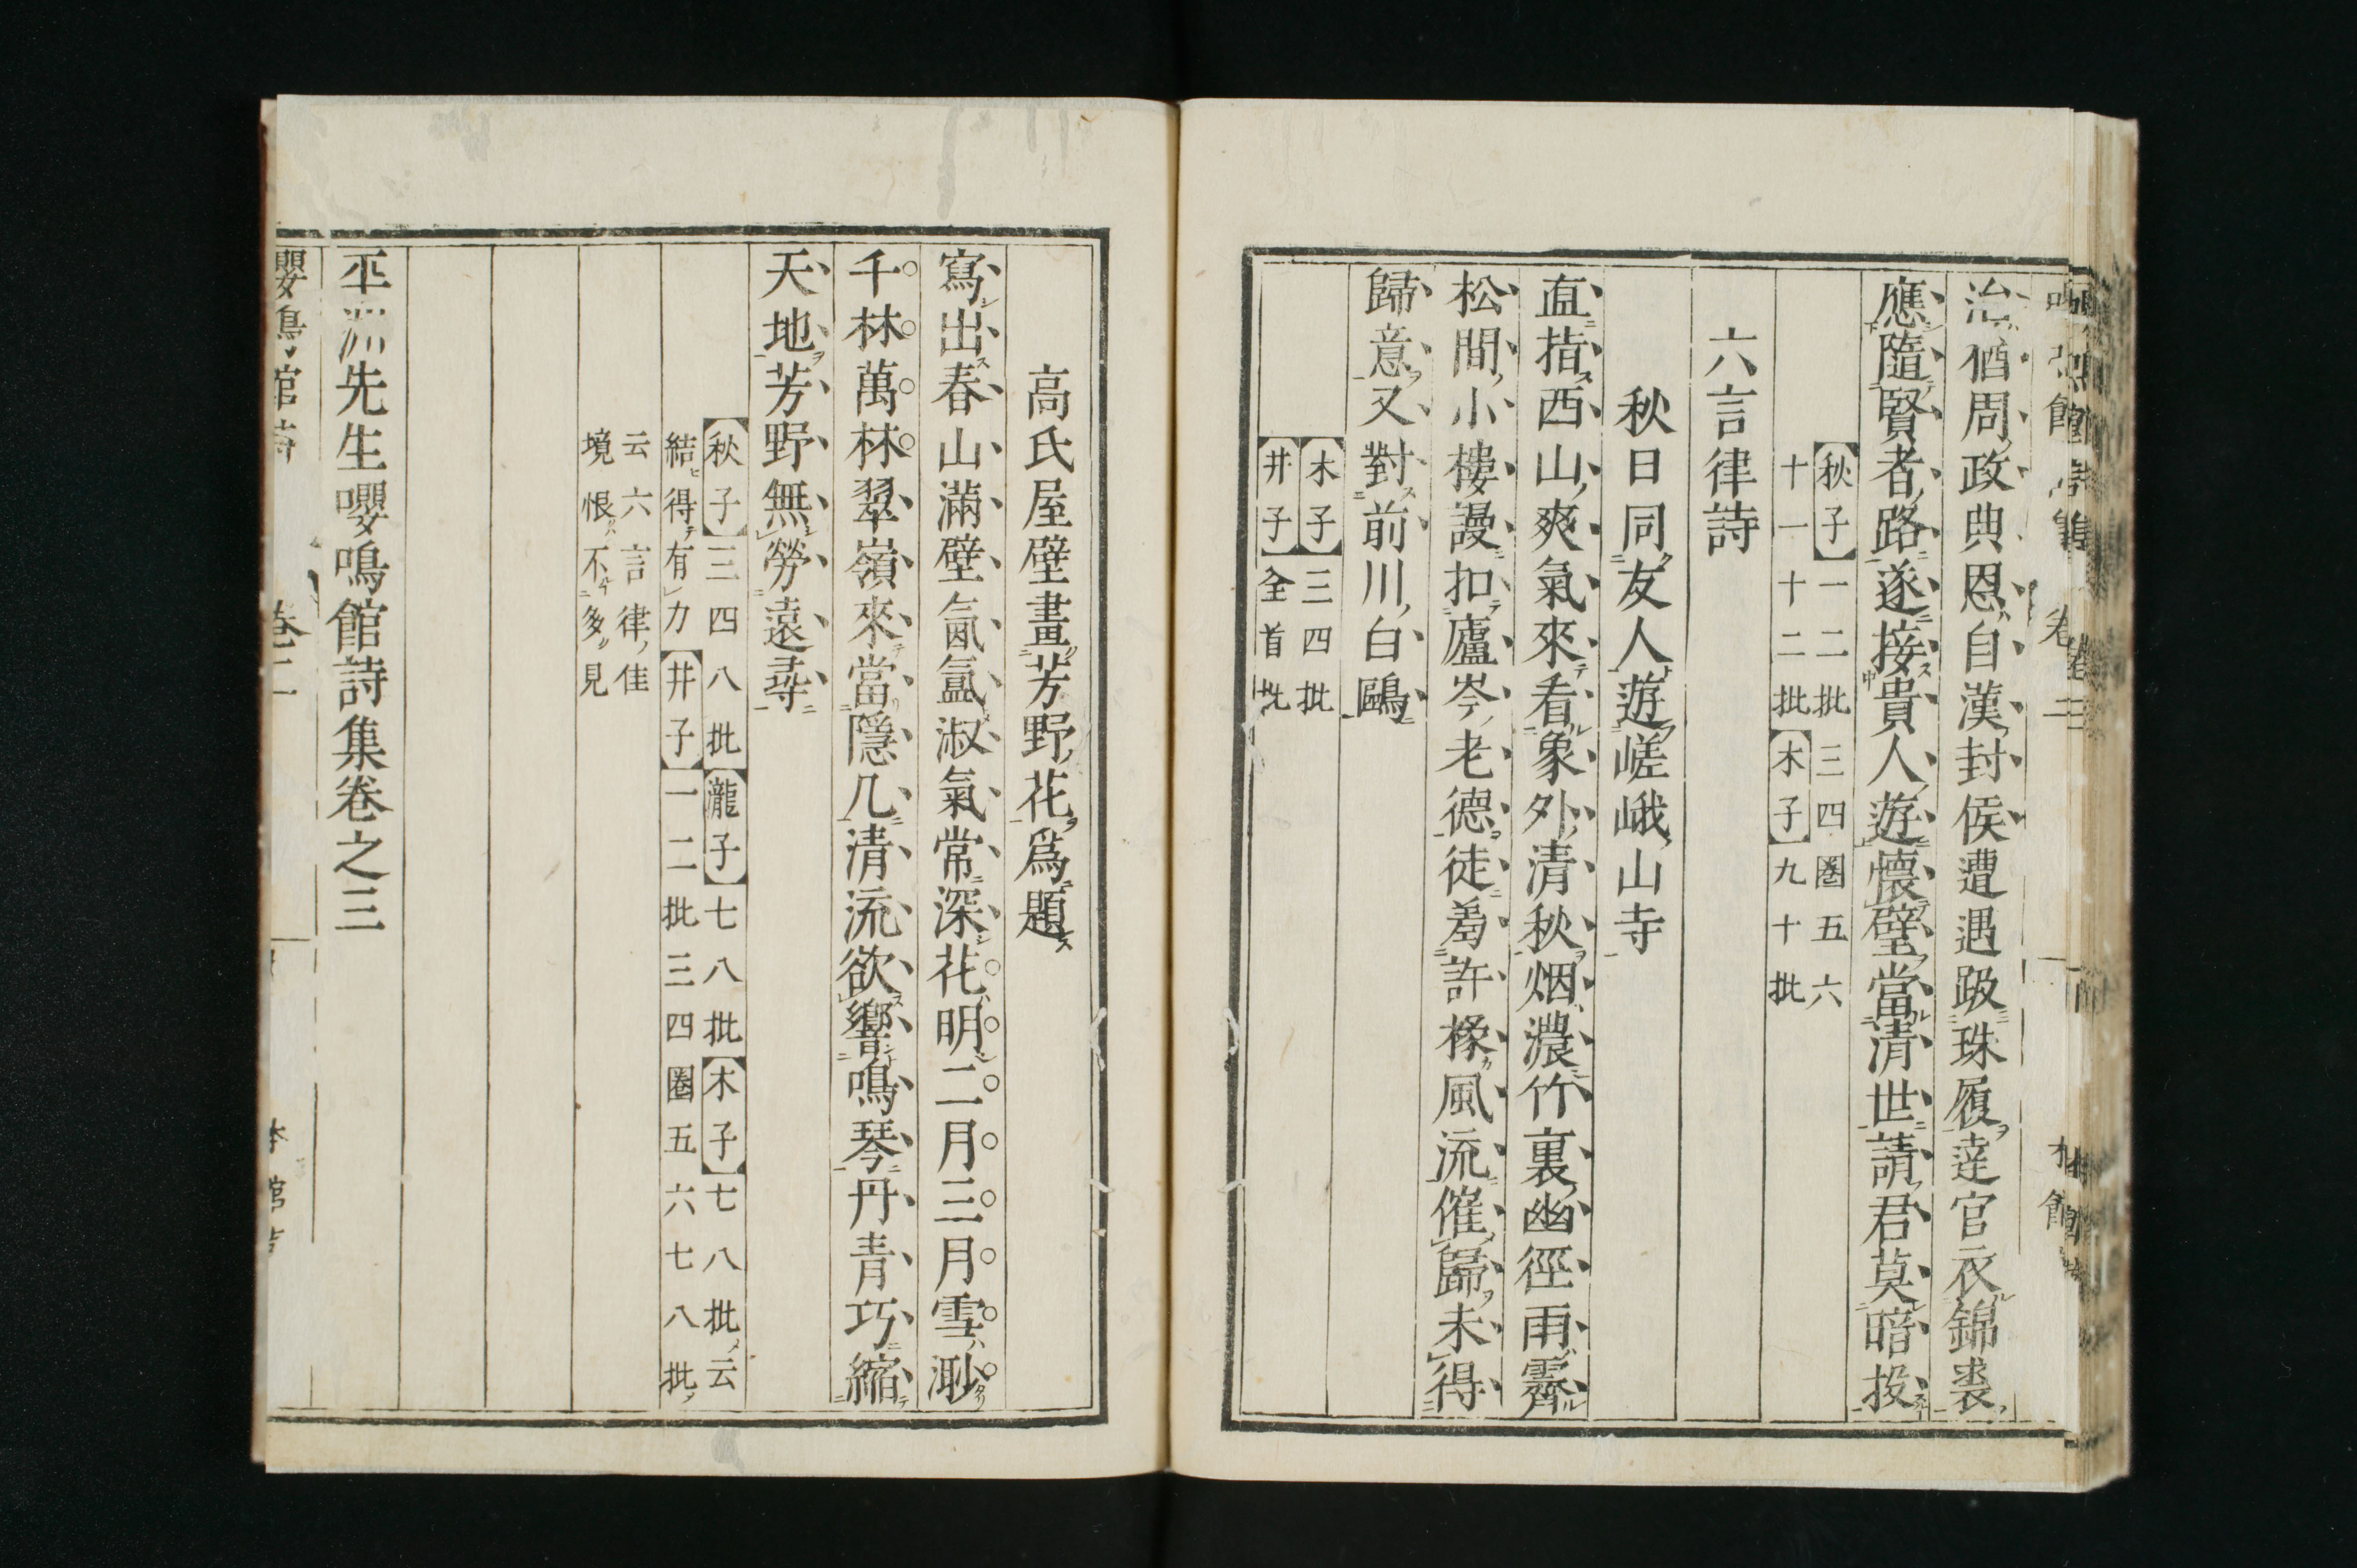 治猶周政典恩自漢封侯遭遇趿珠履達官衣錦裘
應隨賢者路遂接貴人遊懷璧當清世請君莫暗投
【秋子】一二批三四圈五六
十一十二批【木子】九十批
六言律詩
秋日同友人遊嵯峨山寺
直指西山爽氣來看象外清秋烟濃竹裏幽徑雨霽
松間小樓謾扣廬岑老德徒羞許椽風流催歸未得
歸意又對前川白鷗
【木子】三四批
【井子】全首批
高氏屋壁畫芳野花爲題
寫出春山滿壁氤氳淑氣常深花明二月三月雪
千林萬林翠嶺來當隱几清流欲響鳴琴丹青巧縮
天地芳野無勞遠尋
【秋子】三四八批【瀧子】七八批【木子】七八批云
結得有力【井子】一二批三四圈五六七八批
云六言律佳
境恨不多見
平洲先生嚶鳴館詩集卷之三
嚶鳴館詩